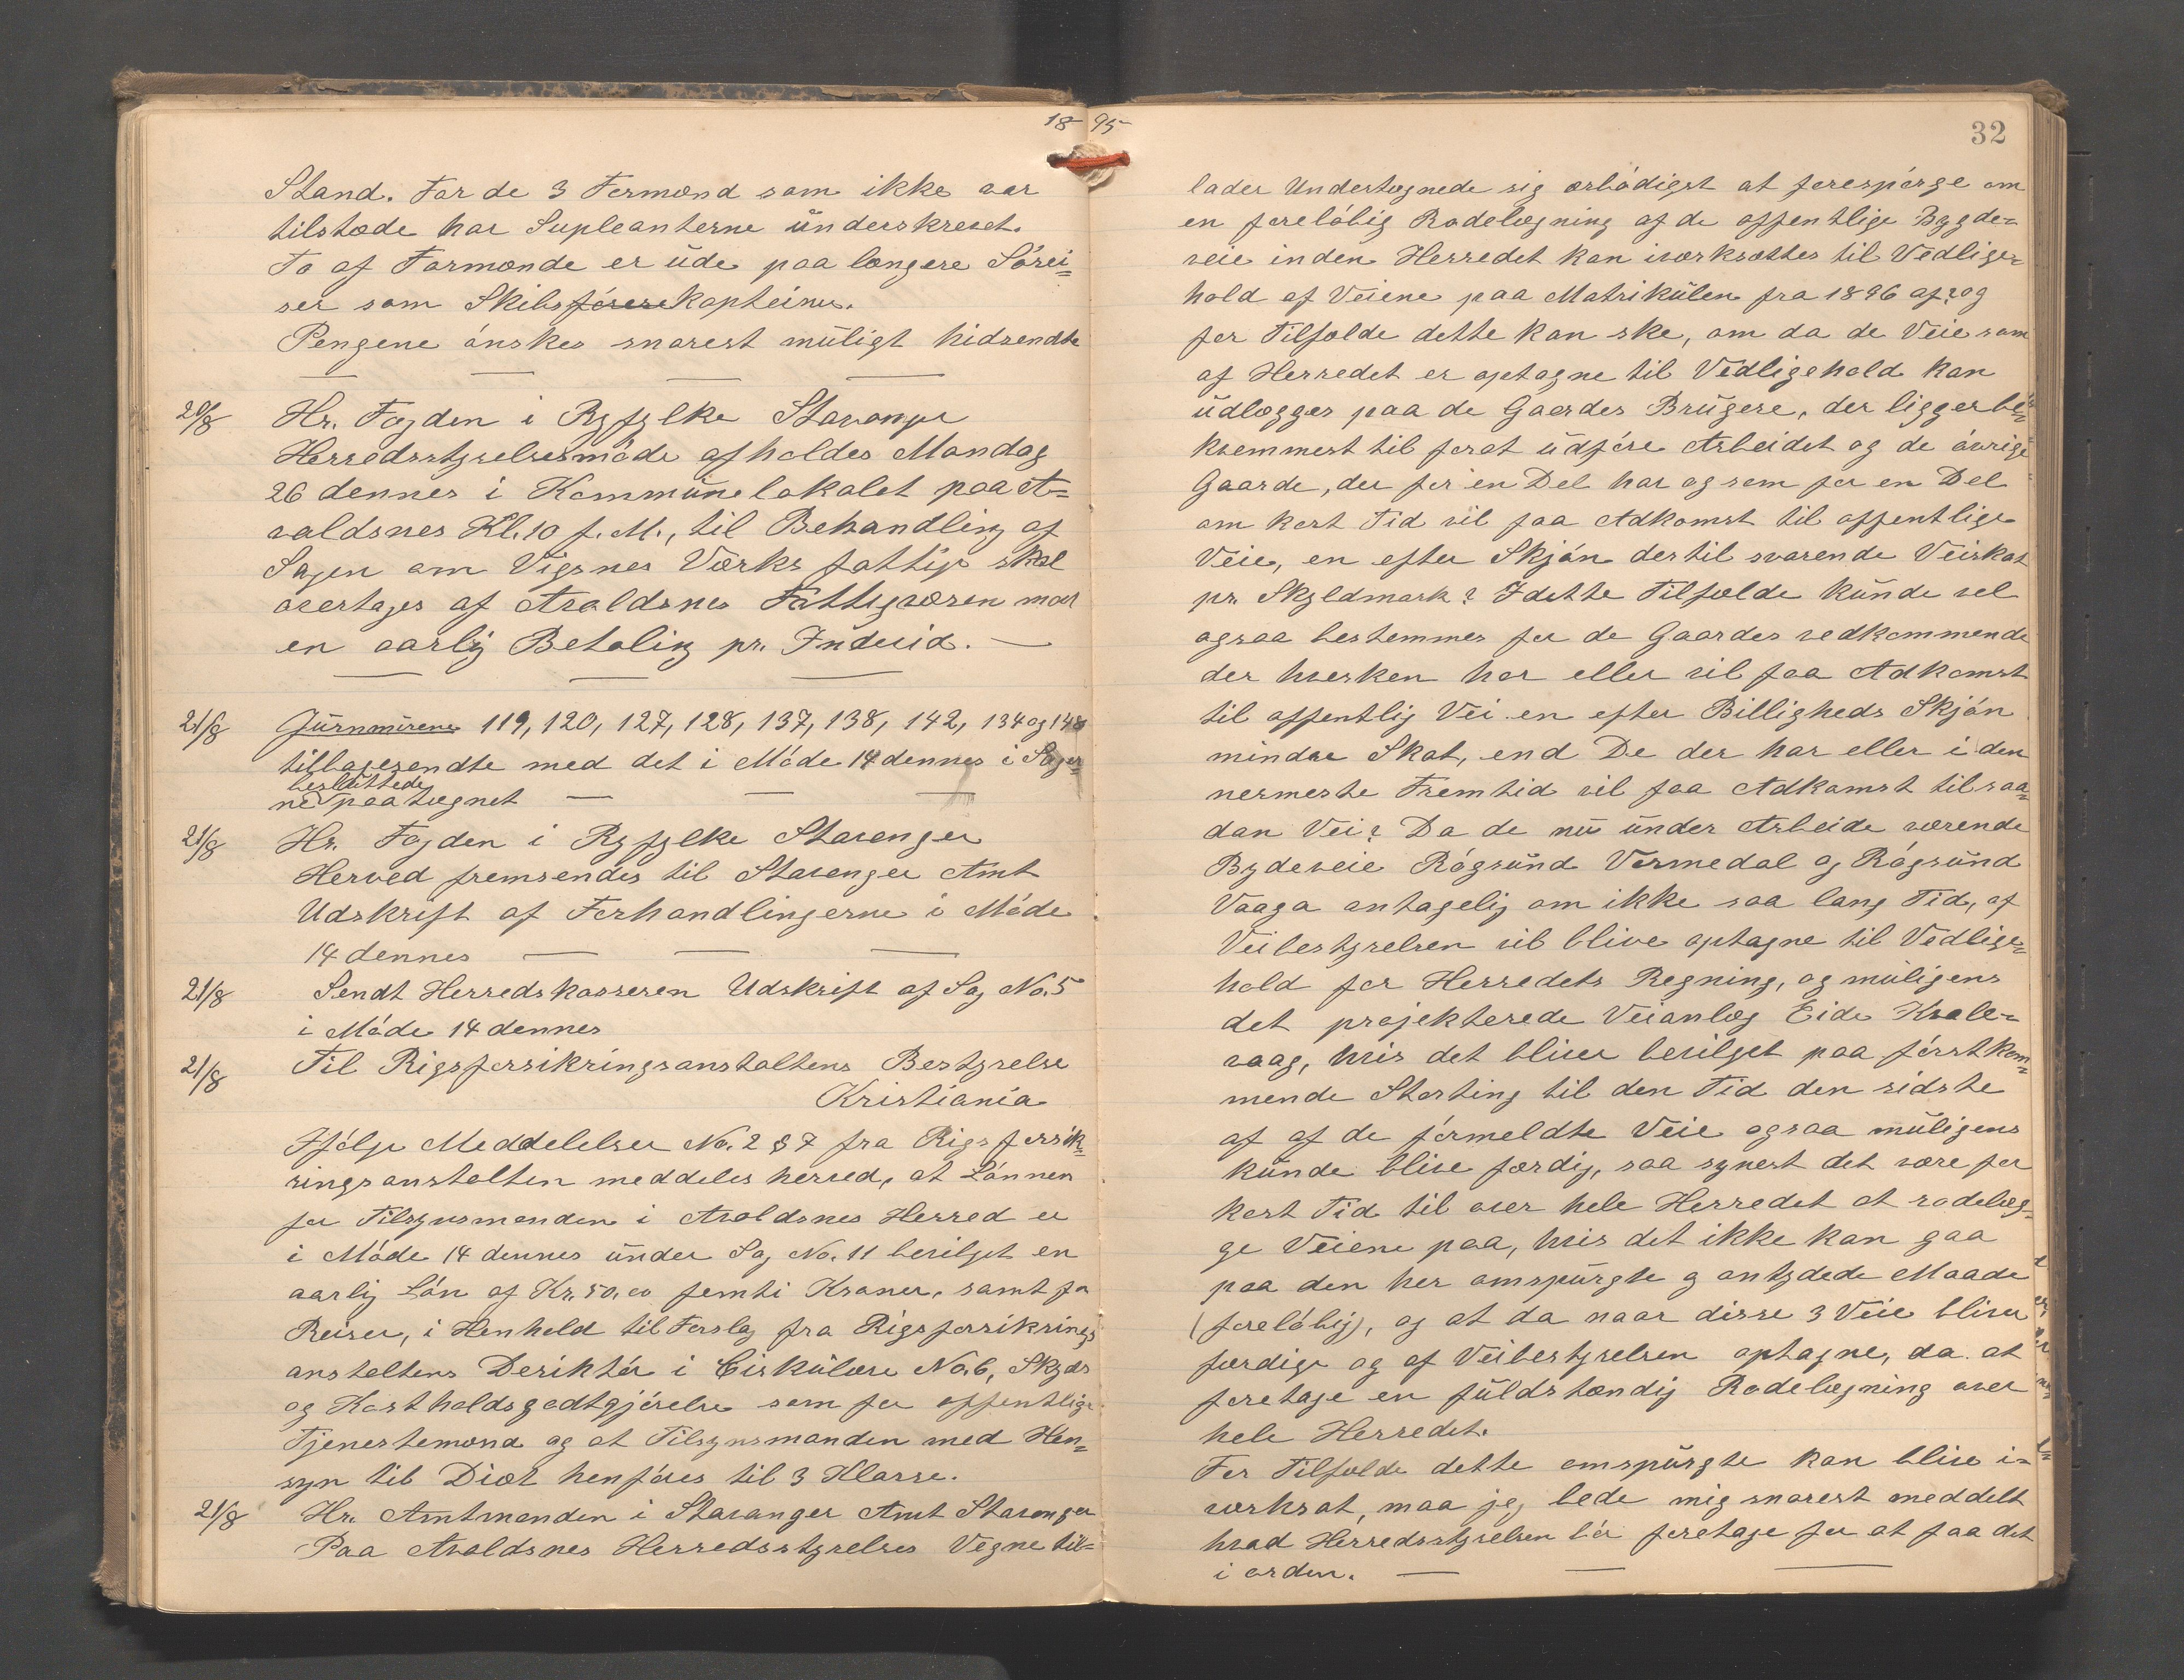 18 95
Stand. For de 3 Formænd som ikke var
tilstæde har Supleanterne underskrevet.
To af Formænde er ude paa længere Sörei=
ser som Skibsförere Kapteiner.
Pengene önskes snarest muligt hidsendte
20/8 Hr. Fogden i Ryfylke Stavanger
Herredsstyrelsesmöde afholdes Mandag
26 dennes i Kommunelokalet paa A=
valdsnes Kl. 10 f. M., til Behandling af
Sagen om Vigsnes Værks fattige skal
overtages af Avaldsnes Fattigvæsen mod
en aarlig Betaling pr. Individ.
21/8 Jurnmirene 119, 120, 127, 128, 137, 138, 142, 134 og 148
tilbagesendte med det i Möde 14 dennes i Sager=
besluttede
ne paategnet
21/8 Hr. Fogden i Ryfylke Stavanger
Herved fremsendes til Stavanger Amt
Udskrift af Forhandlingerne i Möde
14 dennes
21/8 Sendt Herredskasseren Udskrift af Sag No. 5
i Möde 14 dennes
21/8 Til Rigsforsikringsanstaltens Bestyrelse
Kristiania
Ifölge Meddelelser No. 2 & 7 fra Rigsforsik=
ringsanstalten meddeles herved, at Lönnen
for Tilsynsmanden i Avaldsnes Herred er
i Möde 14 dennes under Sag No. 11 bevilget en
aarlig Lön af Kr. 50,00 femti Kroner, samt for
Reiser, i Henhold til Forslag fra Rigsforsikrings
anstaltens Derektör i Cirkulære No. 6, Skyds
og Kostholdsgodtgjörelse som for offentlige
Tjenestemænd og at Tilsynsmanden med Hen=
syn til Diæt henföres til 3 Klasse.
21/8 Hr. Amtmanden i Stavanger Amt Stavanger
Paa Avaldsnes Herredsstyrelses Vegne til=
32
lader Undertegnede sig ærbödigst at forespörge om
en forelöbig Rodelægning af de offentlige Bygde=
veie inden Herredet kan iværksættes til Vedlige=
hold af Veiene paa Matrikulen fra 1896 af? og
for Tilfælde dette kan ske, om da de Veie som
af Herredet er optagne til Vedligehold kan
udlægges paa de Gaardes Brugere, der ligger be=
kvemmest til forat udföre Arbeidet og de övrige
Gaarde, der for en Del har og som for en Del
om kort Tid vil faa Adkomst til offentlige
Veie, en efter Skjön dertil svarende Veiskat
pr. Skyldmark? I dette Tilfælde kunde vel
ogsaa bestemmes for de Gaardes vedkommende
der hverken har eller vil faa Adkomst
til offentlig Vei en efter Billigheds Skjön
mindre Skat, end De der har eller i den
nermeste Fremtid vil faa Adkomst til saa=
dan Vei? Da de nu under Arbeide værende
Bydeveie Rögsund Vormedal og Rögsund
Vaaga antagelig om ikke saa lang Tid, af
Veibestyrelsen vil blive optagne til Vedlige=
hold for Herredets Regning, og muligens
det projekterede Veianlæg Eide Kvale=
vaag, hvis det bliver bevilget paa förstkom=
mende Storting til den Tid den sidste
af af de förmeldte Veie ogsaa muligens
kunde blive færdig, saa synest det være for
kort Tid til over hele Herredet at rodelæg=
ge Veiene paa, hvis det ikke kan gaa
paa den her omspurgte og antydede Maade
(forelöbig), og at da naar disse 3 Veie bliver
færdige og af Veibestyrelsen optagne, da at
foretage en fuldstændig Rodelægning over
hele Herredet.
For Tilfælde dette omspurgte kan blive i=
værksat, maa jeg bede mig snarest meddelt
hvad Herredsstyrelsen bör foretage for at faa det
i orden.